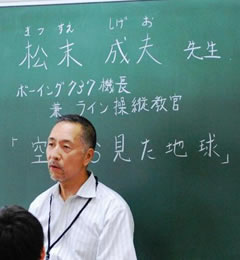 まつ すえ しげ お
松末 成夫 先生
ボーイング737機長
兼 ライン操縦教官
「空 ら見た地球」